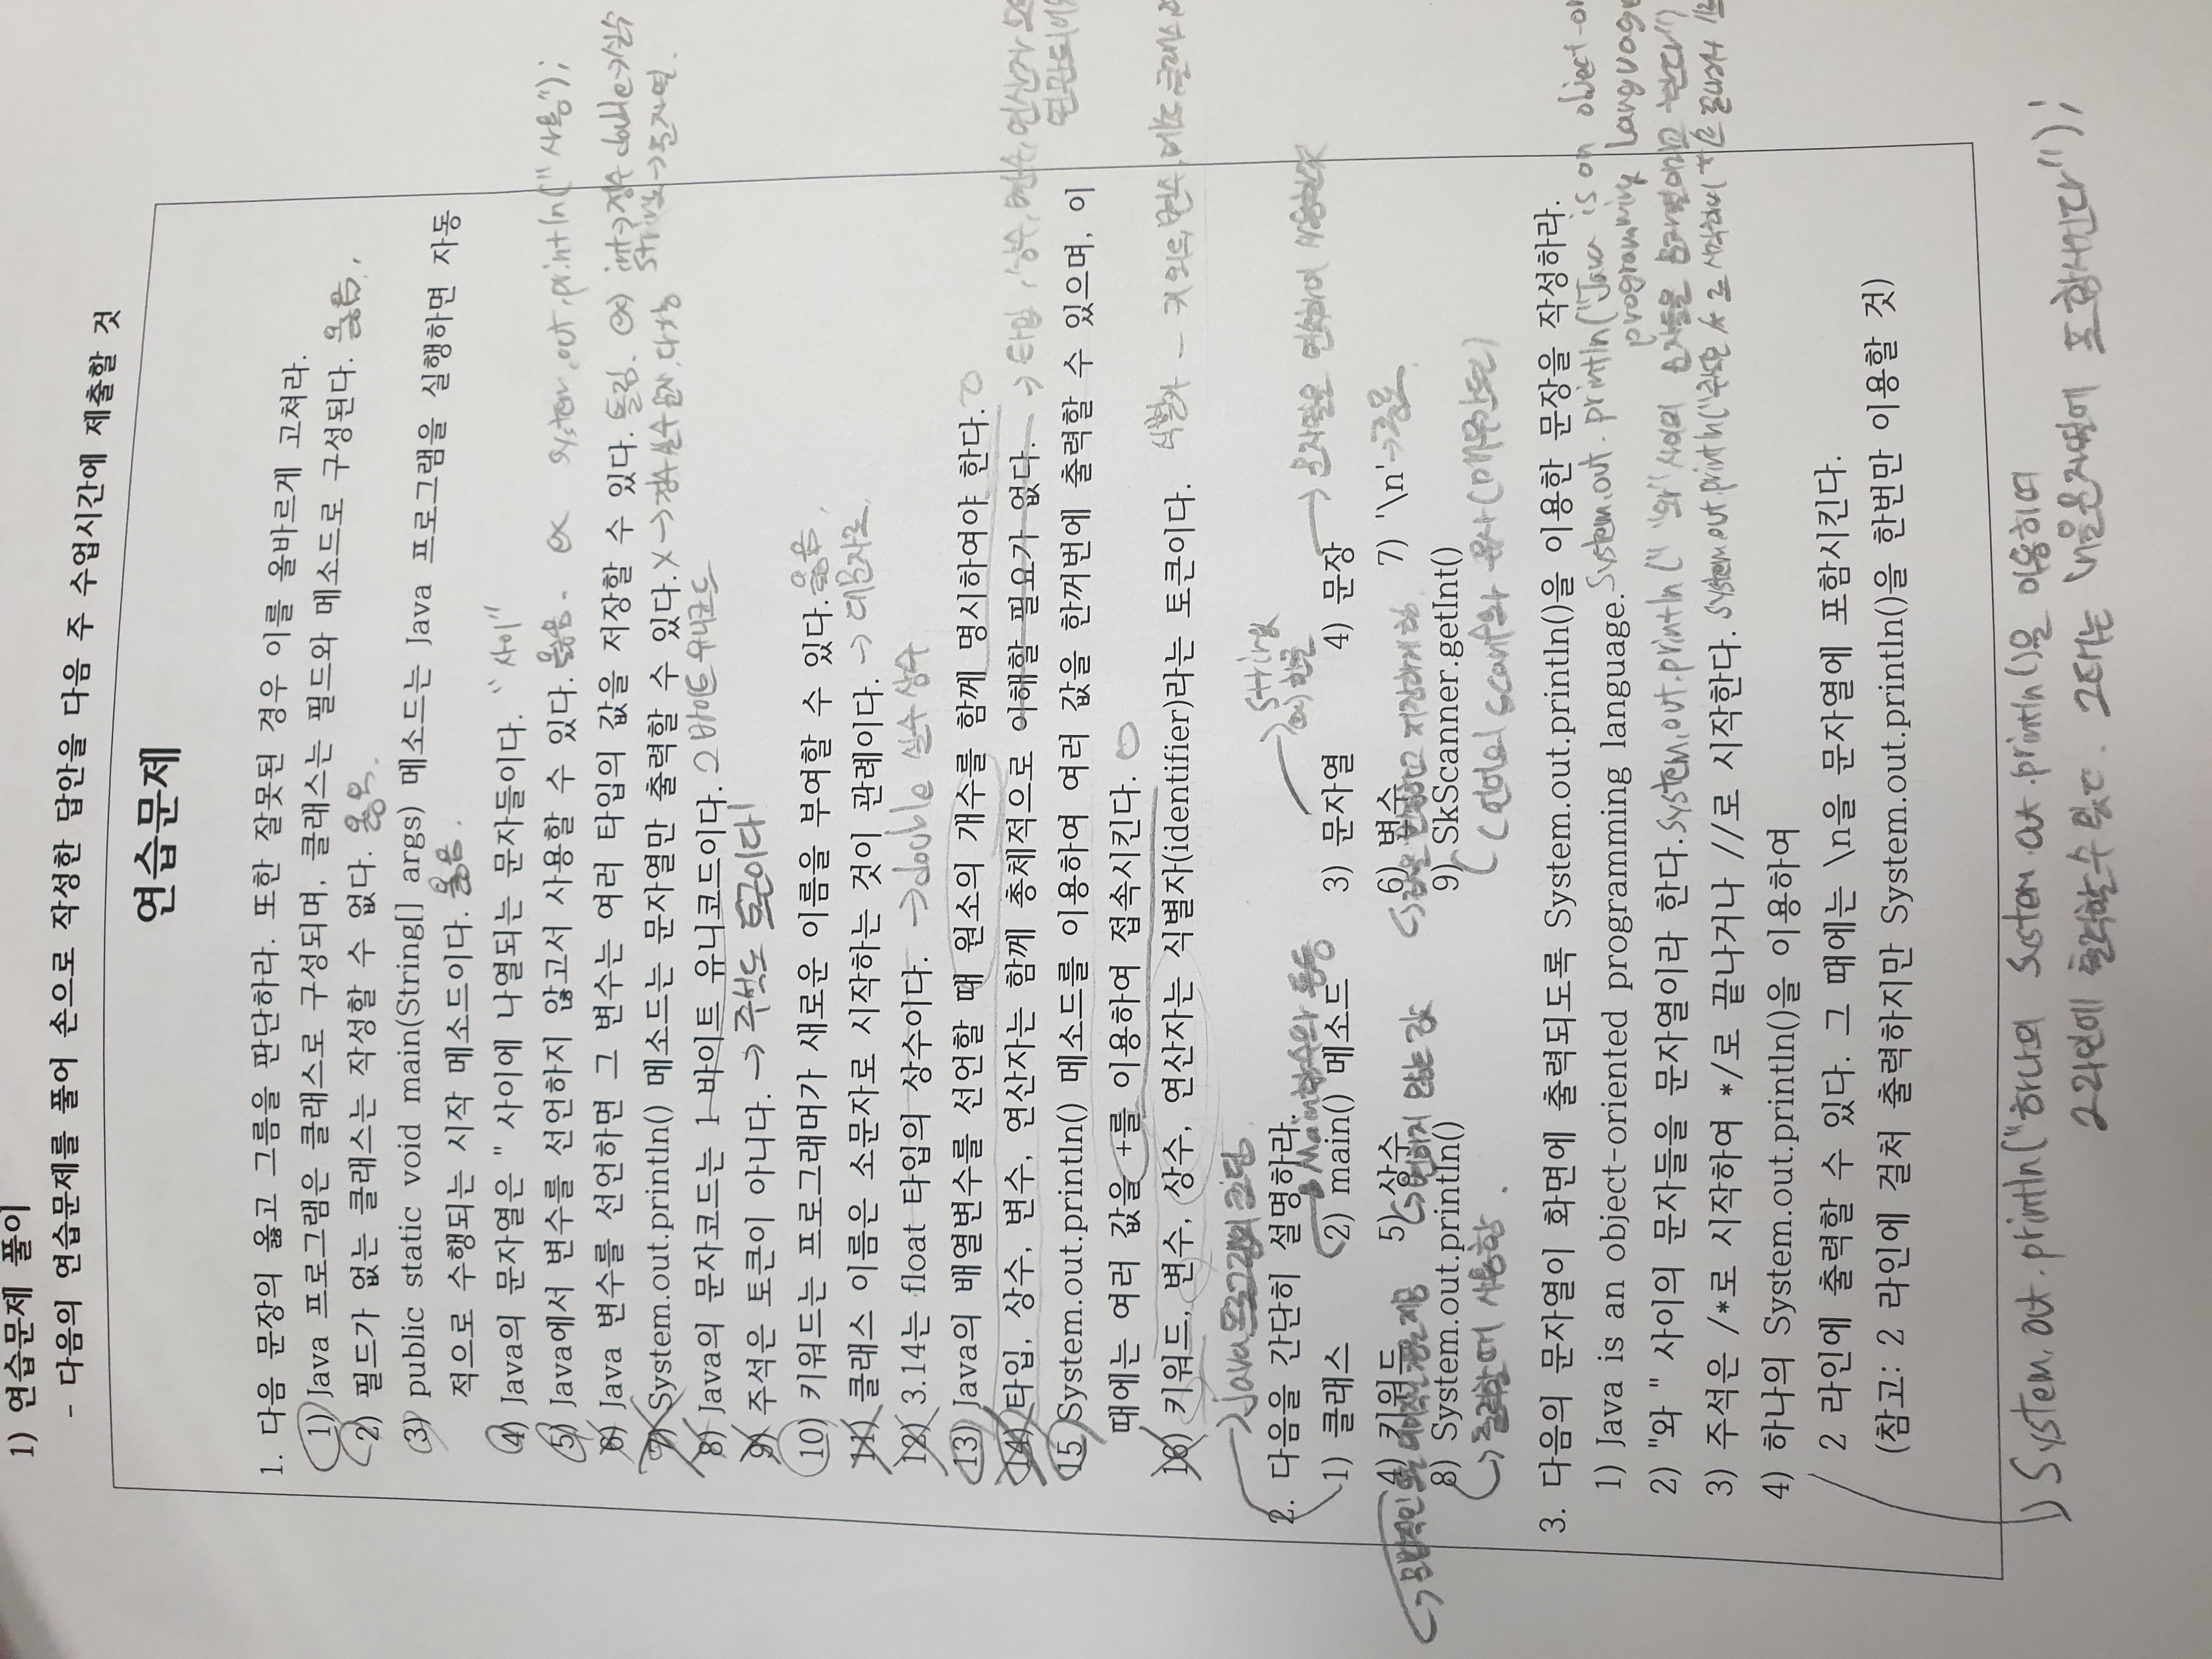 1) 연습문제 풀이
- 다음의 연습문제를 풀어 손으로 작성한 답안을 다음 주 수업시간에 제출할 것
연습문제
1. 다음 문장의 옳고 그름을 판단하라. 또한 잘못된 경우 이를 올바르게 고쳐라.
1) Java 프로그램은 클래스로 구성되며, 클래스는 필드와 메소드로 구성된다. 옳음.
2) 필드가 없는 클래스는 작성할 수 없다. 옳음.
3) public static void main(String[] args) 메소드는 Java 프로그램을 실행하면 자동
적으로 수행되는 시작 메소드이다. 옳음.
4) Java의 문자열은 " 사이에 나열되는 문자들이다. "사이"
5) Java에서 변수를 선언하지 않고서 사용할 수 있다. 옳음. ex system.out.println("사용");
6) Java 변수를 선언하면 그 변수는 여러 타입의 값을 저장할 수 있다. 틀림. ex) int→정수 double→실수
String→문자열.
7) System.out.println() 메소드는 문자열만 출력할 수 있다. X → 정수 실수 문자 다 가능
8) Java의 문자코드는 1 바이트 유니코드이다. 2 바이트 유니코드
9) 주석은 토큰이 아니다. → 주석도 토큰이다!
10) 키워드는 프로그래머가 새로운 이름을 부여할 수 있다. 옳음.
11) 클래스 이름은 소문자로 시작하는 것이 관례이다. → 대문자로.
12) 3.14는 float 타입의 상수이다. → double 실수 상수
13) Java의 배열변수를 선언할 때 원소의 개수를 함께 명시하여야 한다. O
14) 타입, 상수, 변수, 연산자는 함께 총체적으로 이해할 필요가 없다. → 타입, 상수, 변수, 연산자
연관되어
15) System.out.println() 메소드를 이용하여 여러 값을 한꺼번에 출력할 수 있으며, 이
때에는 여러 값을 +를 이용하여 접속시킨다. O
16) 키워드, 변수, 상수, 연산자는 식별자(identifier)라는 토큰이다. 식별자 - 키워드, 변수, 메소드, 클래스,
→ java 프로그램의 코딩.
2. 다음을 간단히 설명하라.
Main함수와 동등
String
ex) 한글
1) 클래스 2) main() 메소드 3) 문자열 4) 문장 → 문자열을 연속하여 사용한것
4) 키워드 5) 상수 6) 변수 7) '\n' → 종료
→ 변하지 않는 값 → 값을 변경하고 저장하게 함.
8) System.out.println() 9) SkScanner.getInt()
→ 출력할 때 사용함. C언어의 scanf와 유사 (매우간단)
3. 다음의 문자열이 화면에 출력되도록 System.out.println()을 이용한 문장을 작성하라.
1) Java is an object-oriented programming language. System.out.println("Java is an object-or
programming language
2) "와 " 사이의 문자들을 문자열이라 한다. system.out.println(" "와" 사이의 문자들을 문자열이라고 한다")
3) 주석은 /*로 시작하여 */로 끝나거나 //로 시작한다. system.out.println("주석은 /*로 시작하여 */로 끝나거나 //로
4) 하나의 System.out.println()을 이용하여
2 라인에 출력할 수 있다. 그 때에는 \n을 문자열에 포함시킨다.
(참고: 2 라인에 걸처 출력하지만 System.out.println()을 한번만 이용할 것)
1) System.out.println("하나의 System.out.println()을 이용하여
2라인에 출력할 수 있다. 그때는 \n을 문자열에 포함시킨다");